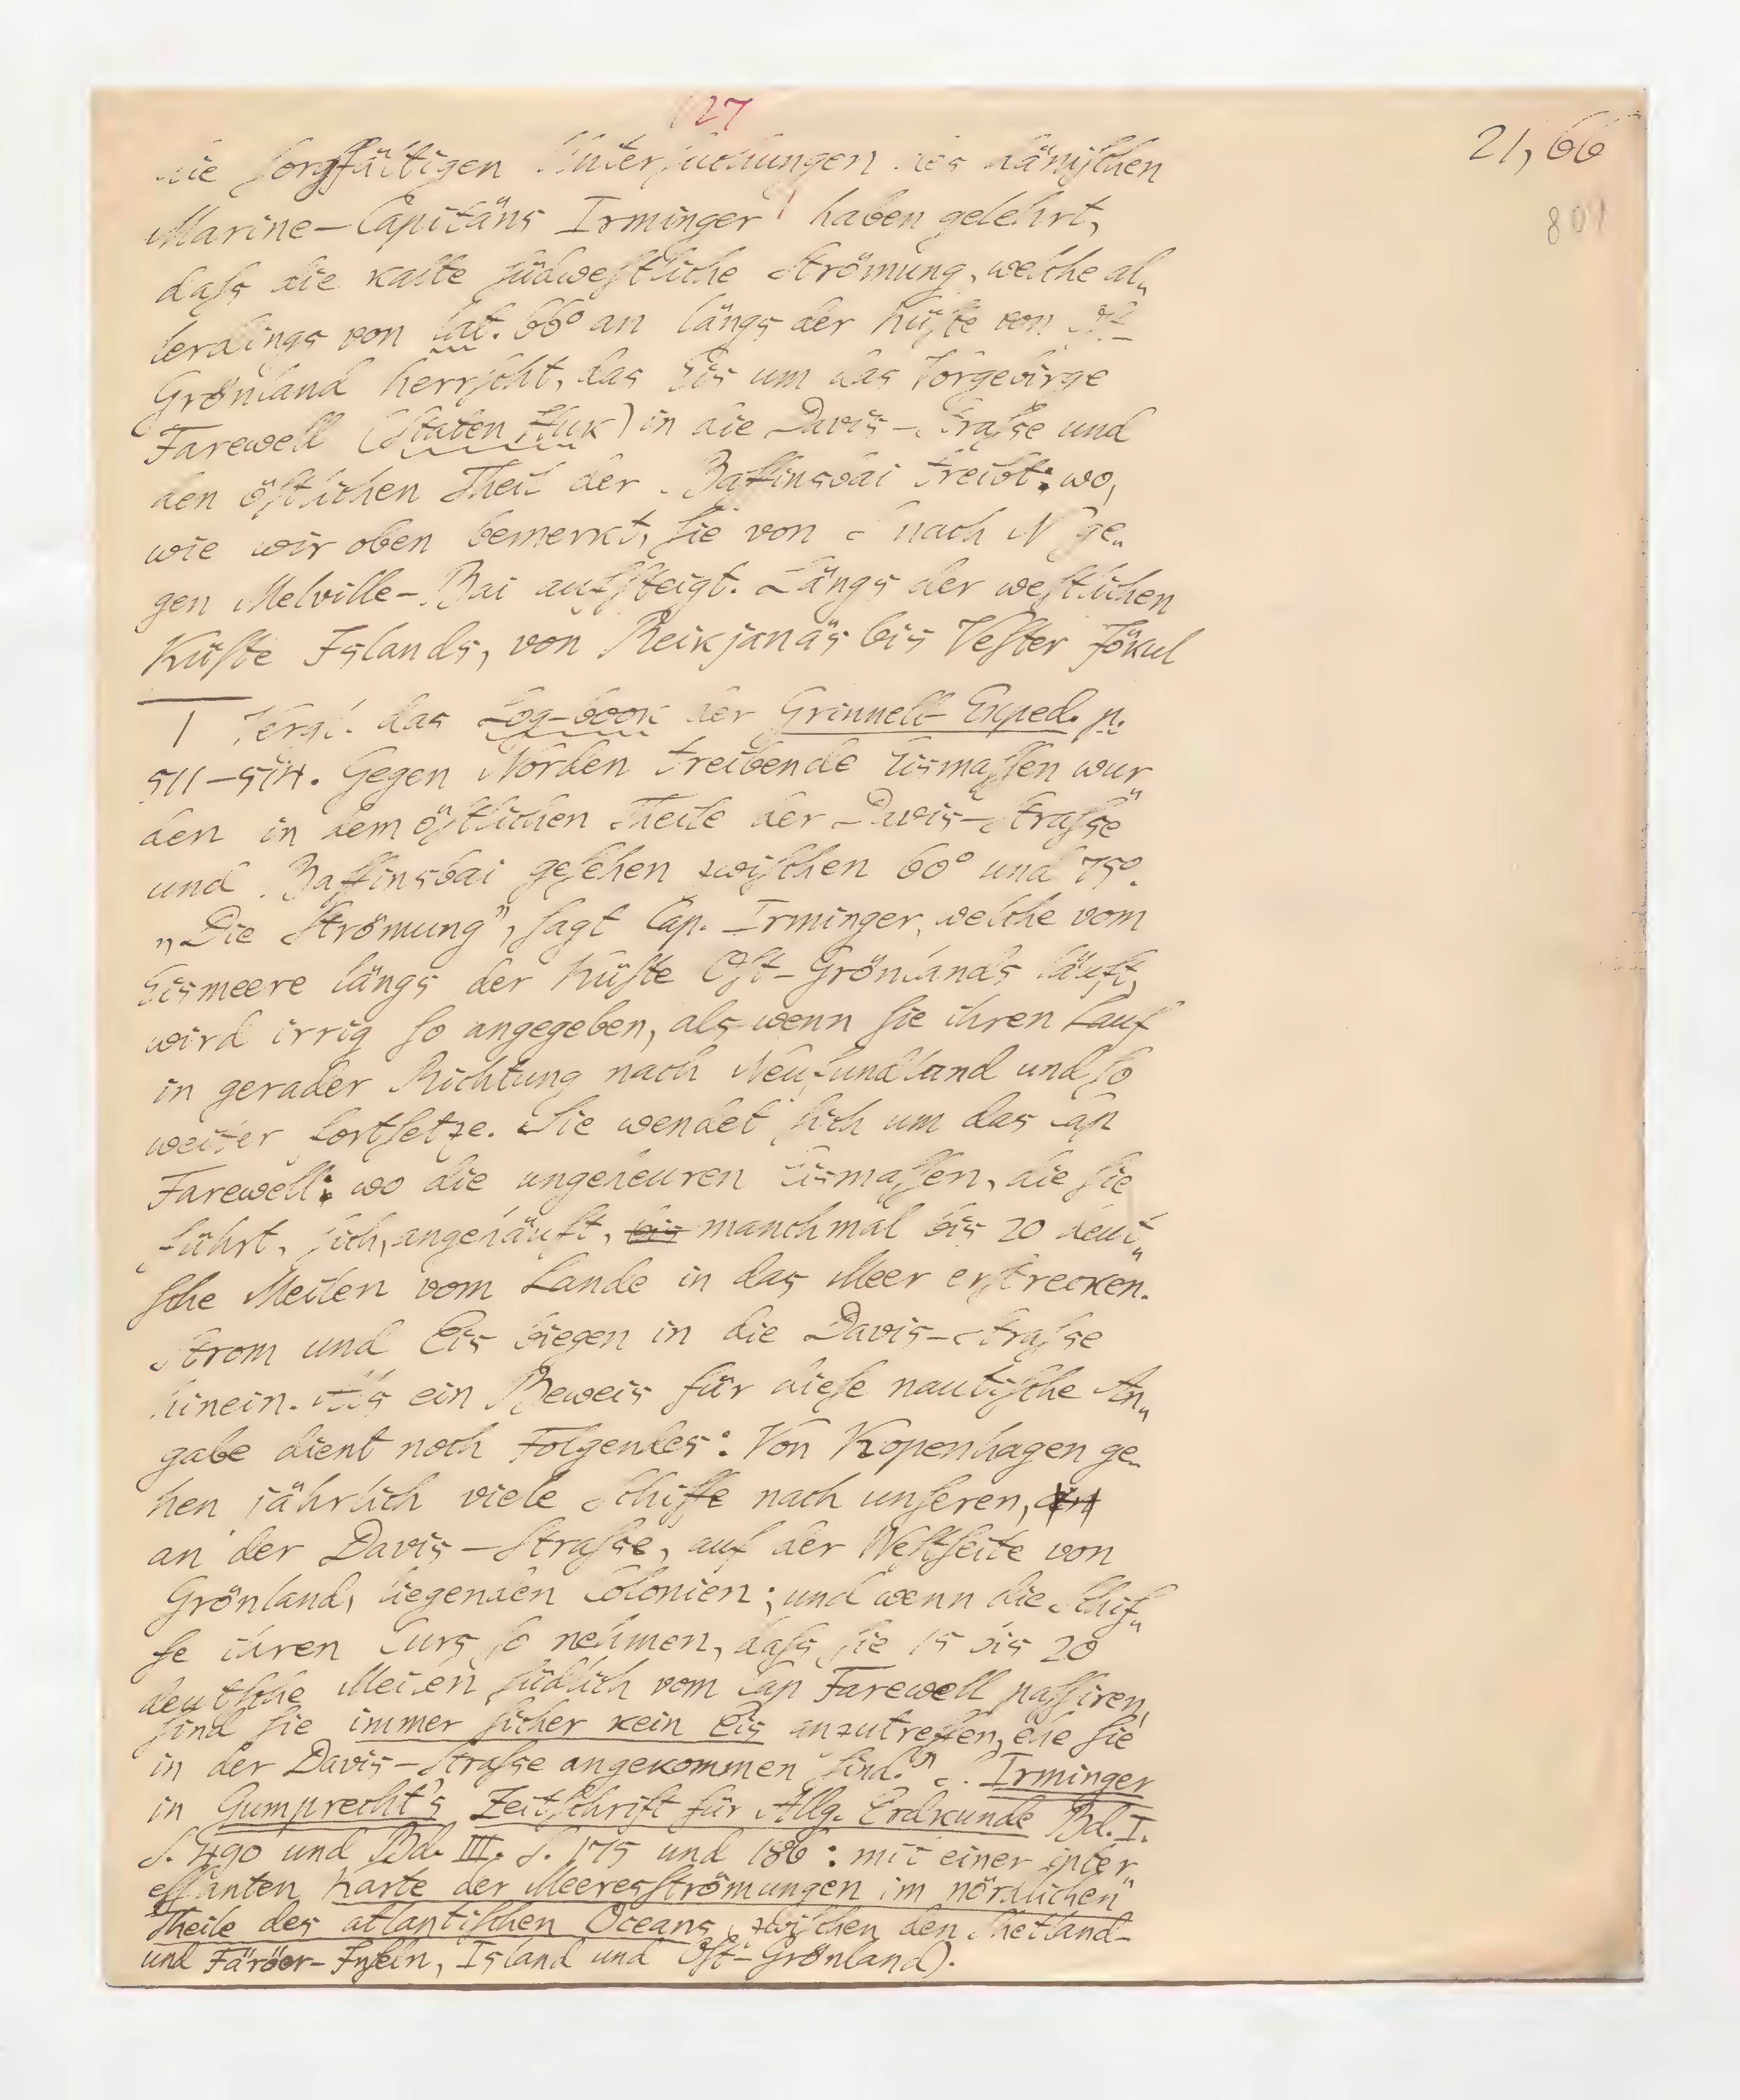 127
21,66
801
die sorgfältigen Untersuchungen des dänischen
Marine-Capitäns Irminger¹ haben gelehrt,
daſs die kalte südwestliche Strömung, welche al„
lerdings von lat. 66° an längs der Küste von
Grönland herrscht, das Eis um das Vorgebirge
Farewell (Staten Huk) in die Davis-Straſse und
den östlichen Theil der Baffinsbai treibt: wo,
wie wir oben bemerkt, sie von S nach N ge„
gen Melville-Bai aufsteigt. Längs der westlichen
Küste Islands, von Reikjanäs bis Vester Jökul
1 Vergl. das Log-book der Grinnell Exped. p.
511–514. Gegen Norden treibende Eismassen wur„
den in dem östlichen Theile der Davis-Straſse
und Baffinsbai gesehen zwischen 60° und 75°.
„Die Strömung", sagt Cap. Irminger, welche vom
Eismeere längs der Küste Ost-Grönlands läuft,
wird irrig so angegeben, als wenn sie ihren Lauf
in gerader Richtung nach Neufundland und so
weiter fortsetze. Sie wendet sich um das Cap
Farewell: wo die ungeheuren Eismassen, die sie
führt, sich, angehäuft, bis manchmal bis 20 deut„
sche Meilen vom Lande in das Meer erstrecken.
Strom und Eis biegen in die Davis-Straſse
hinein. Als ein Beweis für diese nautische An„
gabe dient noch Folgendes: Von Kopenhagen ge„
hen jährlich viele Schiffe nach unseren,
an der Davis-Straſse, auf der Westseite von
Grönland, liegenden Colonien; und wenn die Schif„
fe ihren Curs so nehmen, daſs sie 15 bis 20
deutsche Meilen südlich vom Cap Farewell passiren,
sind sie immer sicher kein Eis anzutreffen, ehe sie
in der Davis-Straſse angekommen sind." S. Irminger
in Gumprecht's Zeitschrift für Allg. Erdkunde Bd. I.
S. 490 und Bd. III. S. 175 und 186: mit einer inter„
essanten Karte der Meeresströmungen im nördlichen
Theile des atlantischen Oceans, zwischen den Shetland-
und Färöer-Inseln, Island und Ost-Grönland).